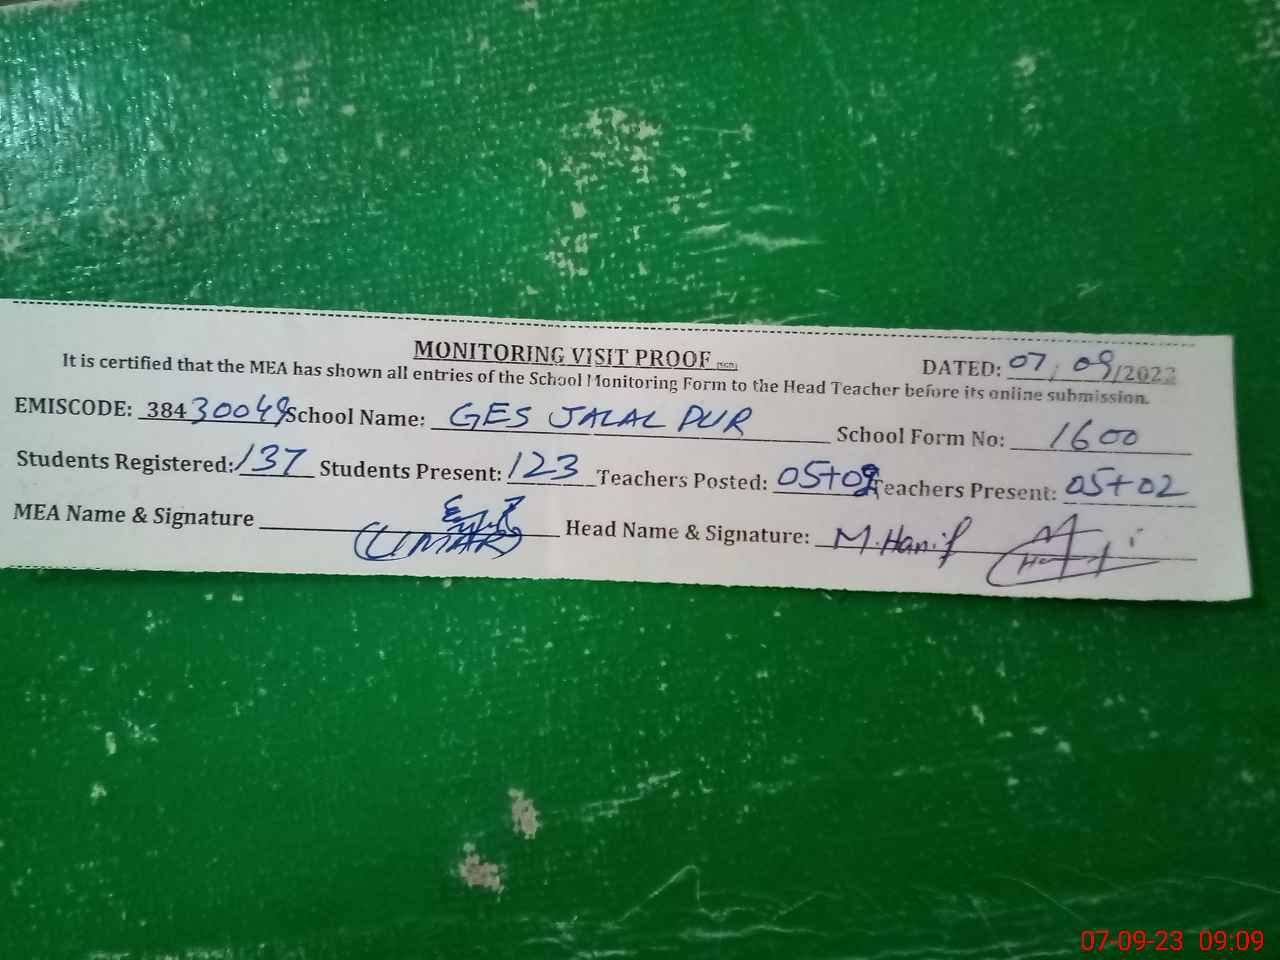 MONITORING VISIT PROOF
DATED: 07/09/2022
It is certified that the MEA has shown all entries of the School Monitoring Form to the Head Teacher before its online submission.
EMISCODE: 38430049 School Name: GES JALAL PUR School Form No: 1600
Students Registered: 137 Students Present: 123 Teachers Posted: 05+02 Teachers Present: 05+02
MEA Name & Signature (UMAR) Head Name & Signature: M.Hanif
07-09-23 09:09